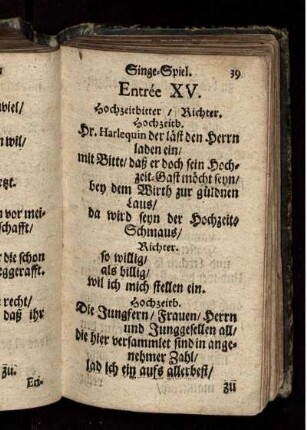 viel/
n wil/
tzt.
n vor mei-
schafft/
r die schon
eggerafft.
e recht/
daß ihr
zu.
En-
Singe-Spiel. 39
Entrée XV.
Hochzeitbitter / Richter.
Hochzeitb.
Hr. Harlequin der läst den Herrn
laden ein/
mit Bitte/ daß er doch sein Hoch-
zeit-Gast möcht seyn/
bey dem Wirth zur güldnen
Laus/
da wird seyn der Hochzeit-
Schmaus/
Richter.
so willig/
als billig/
wil ich mich stellen ein.
Hochzeitb.
Die Jungfern/ Frauen/ Herrn
und Junggesellen all/
die hier versammlet sind in ange-
nehmer Zahl/
lad ich ein aufs allerbest/
zu